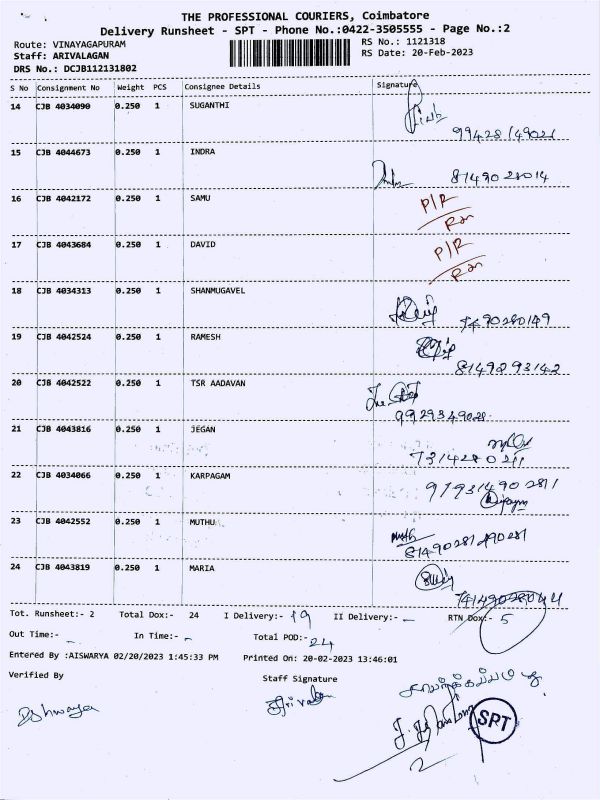 THE PROFESSIONAL COURIERS, Coimbatore
Delivery Runsheet - SPT - Phone No.:0422-3505555 - Page No.:2
Route: VINAYAGAPURAM RS No.: 1121318
Staff: ARIVALAGAN RS Date: 20-Feb-2023
DRS No.: DCJB112131802
S No Consignment No Weight PCS Consignee Details Signature
14 CJB 4034090 0.250 1 SUGANTHI
15 CJB 4044673 0.250 1 INDRA
8149028014
16 CJB 4042172 0.250 1 SAMU P/R
17 CJB 4043684 0.250 1 DAVID P/R
18 CJB 4034313 0.250 1 SHANMUGAVEL
19 CJB 4042524 0.250 1 RAMESH
8149293142
20 CJB 4042522 0.250 1 TSR AADAVAN
21 CJB 4043816 0.250 1 JEGAN
22 CJB 4034066 0.250 1 KARPAGAM
23 CJB 4042552 0.250 1 MUTHU
24 CJB 4043819 0.250 1 MARIA
Tot. Runsheet:- 2 Total Dox:- 24 I Delivery:- 19 II Delivery:- - RTN Dox:- 5
Out Time:- - In Time:- - Total POD:- 24
Entered By :AISWARYA 02/20/2023 1:45:33 PM Printed On: 20-02-2023 13:46:01
Verified By Staff Signature
SPT
2